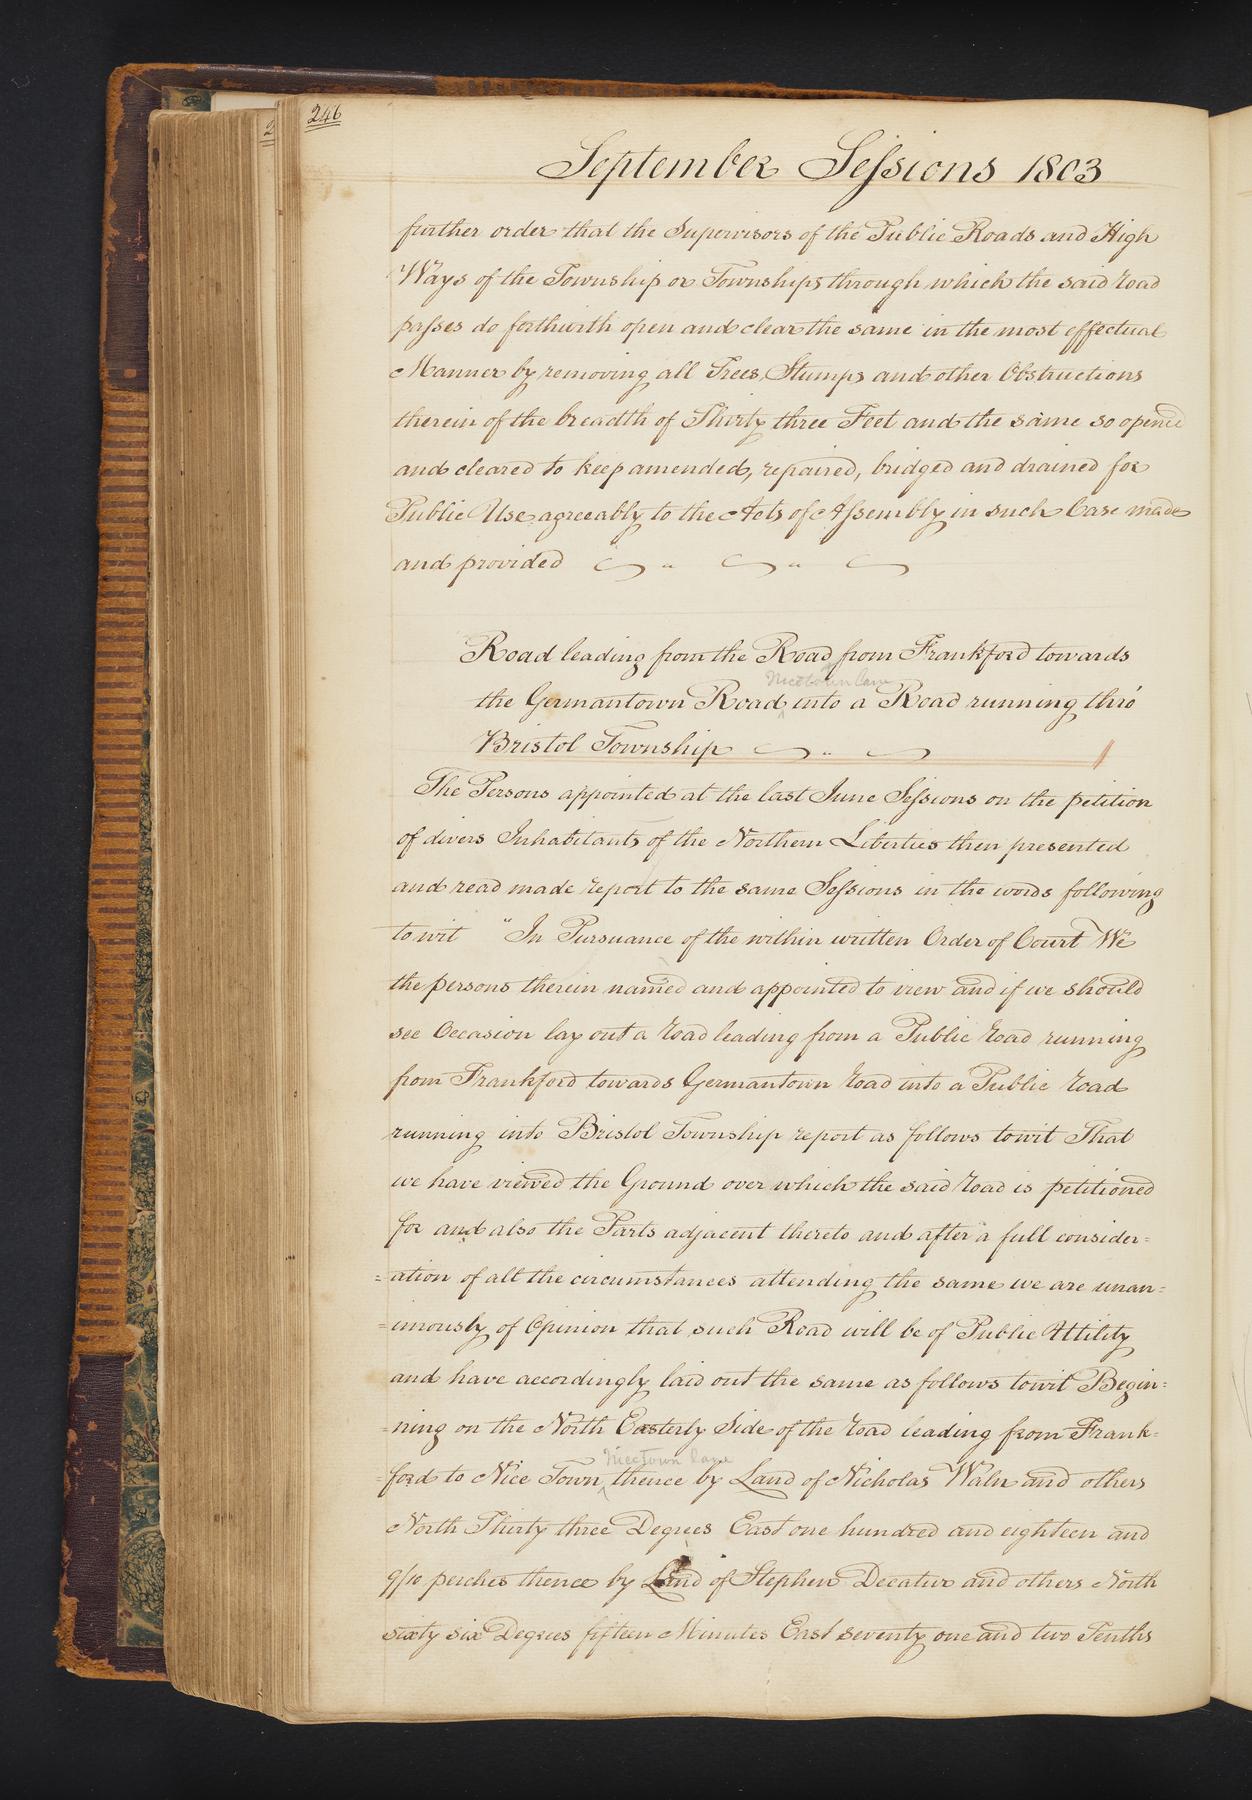 246
September Sessions 1803
further order that the Supervisors of the Public Roads and High
Ways of the Township or Townships through which the said road
passes do forthwith open and clear the same in the most effectual
Manner by removing all Trees, Stumps and other Obstructions
therein of the breadth of Thirty three Feet and the same so opened
and cleared to keep amended, repaired, bridged and drained for
Public Use agreeably to the Acts of Assembly in such Case made
and provided
Road leading from the Road from Frankford towards
Nicetown lane
the Germantown Road into a Road running thro'
Bristol Township
The Persons appointed at the last June Sessions on the petition
of divers Inhabitants of the Northern Liberties then presented
and read made report to the same Sessions in the words following
to wit "In Pursuance of the within written Order of Court We
the persons therein named and appointed to view and if we should
see Occasion lay out a road leading from a Public road running
from Frankford towards Germantown road into a Public road
running into Bristol Township report as follows towit That
we have viewed the Ground over which the said road is petitioned
for and also the Parts adjacent thereto and after a full consider=
=ation of all the circumstances attending the same we are unan=
=imously of Opinion that such Road will be of Public Utility
and have accordingly laid out the same as follows towit Begin=
=ning on the North Easterly Side of the road leading from Frank=
Nicetown lane
=ford to Nice Town, thence by Land of Nicholas Waln and others
North Thirty three Degrees East one hundred and eighteen and
9/10 perches thence by Land of Stephen Decatur and others North
sixty six Degrees fifteen Minutes East seventy one and two Tenths